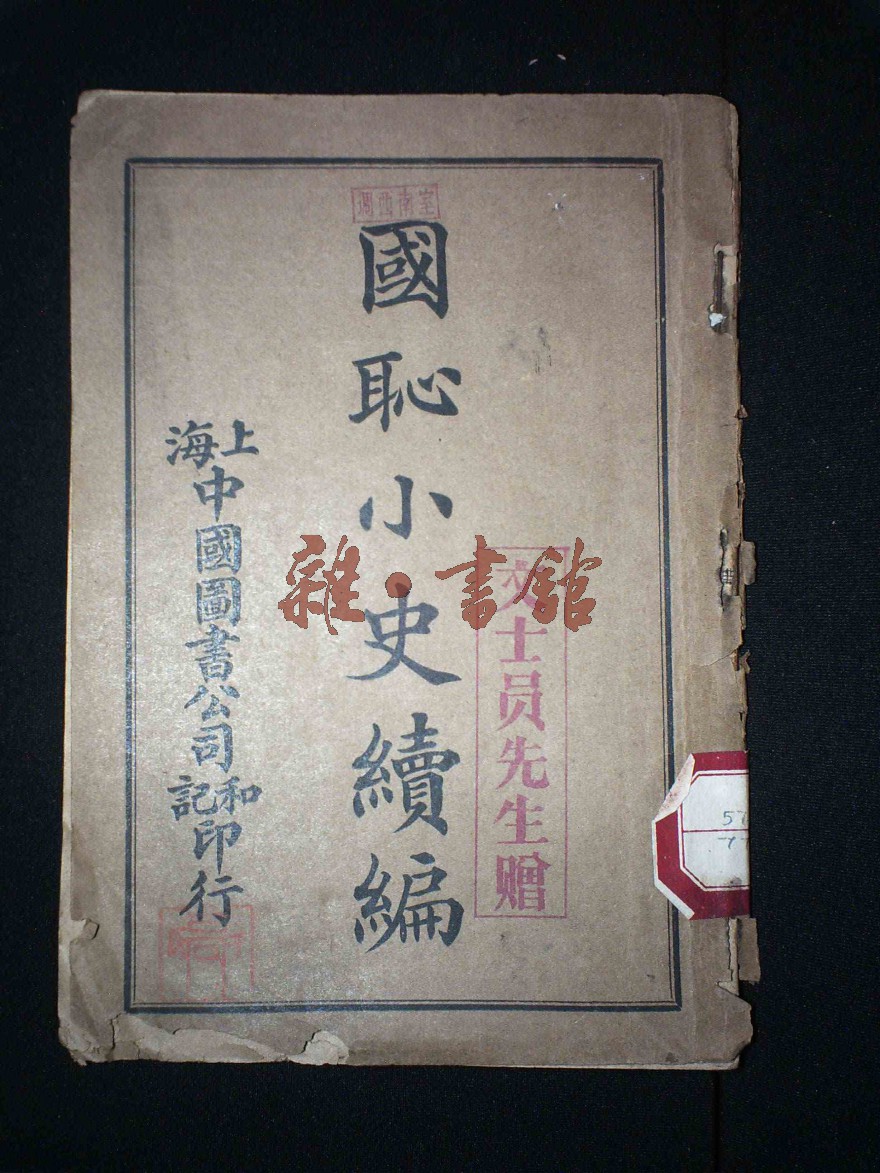 國恥小史續編
上海
中國圖書公司
和記
印行
士员先生赠
雜·書館
57